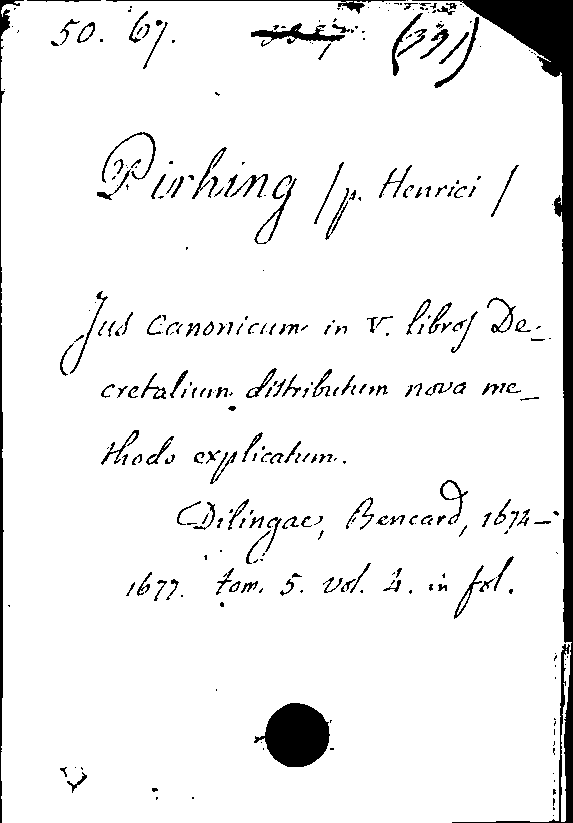 50. 67. (391)
Pirhing /p. Henrici/
Jus canonicum in V. libros De-
cretalium distributum nova me-
thodo explicatum.
Dilingae, Bencard, 1674-
1677. tom. 5. vol. 4. in fol.